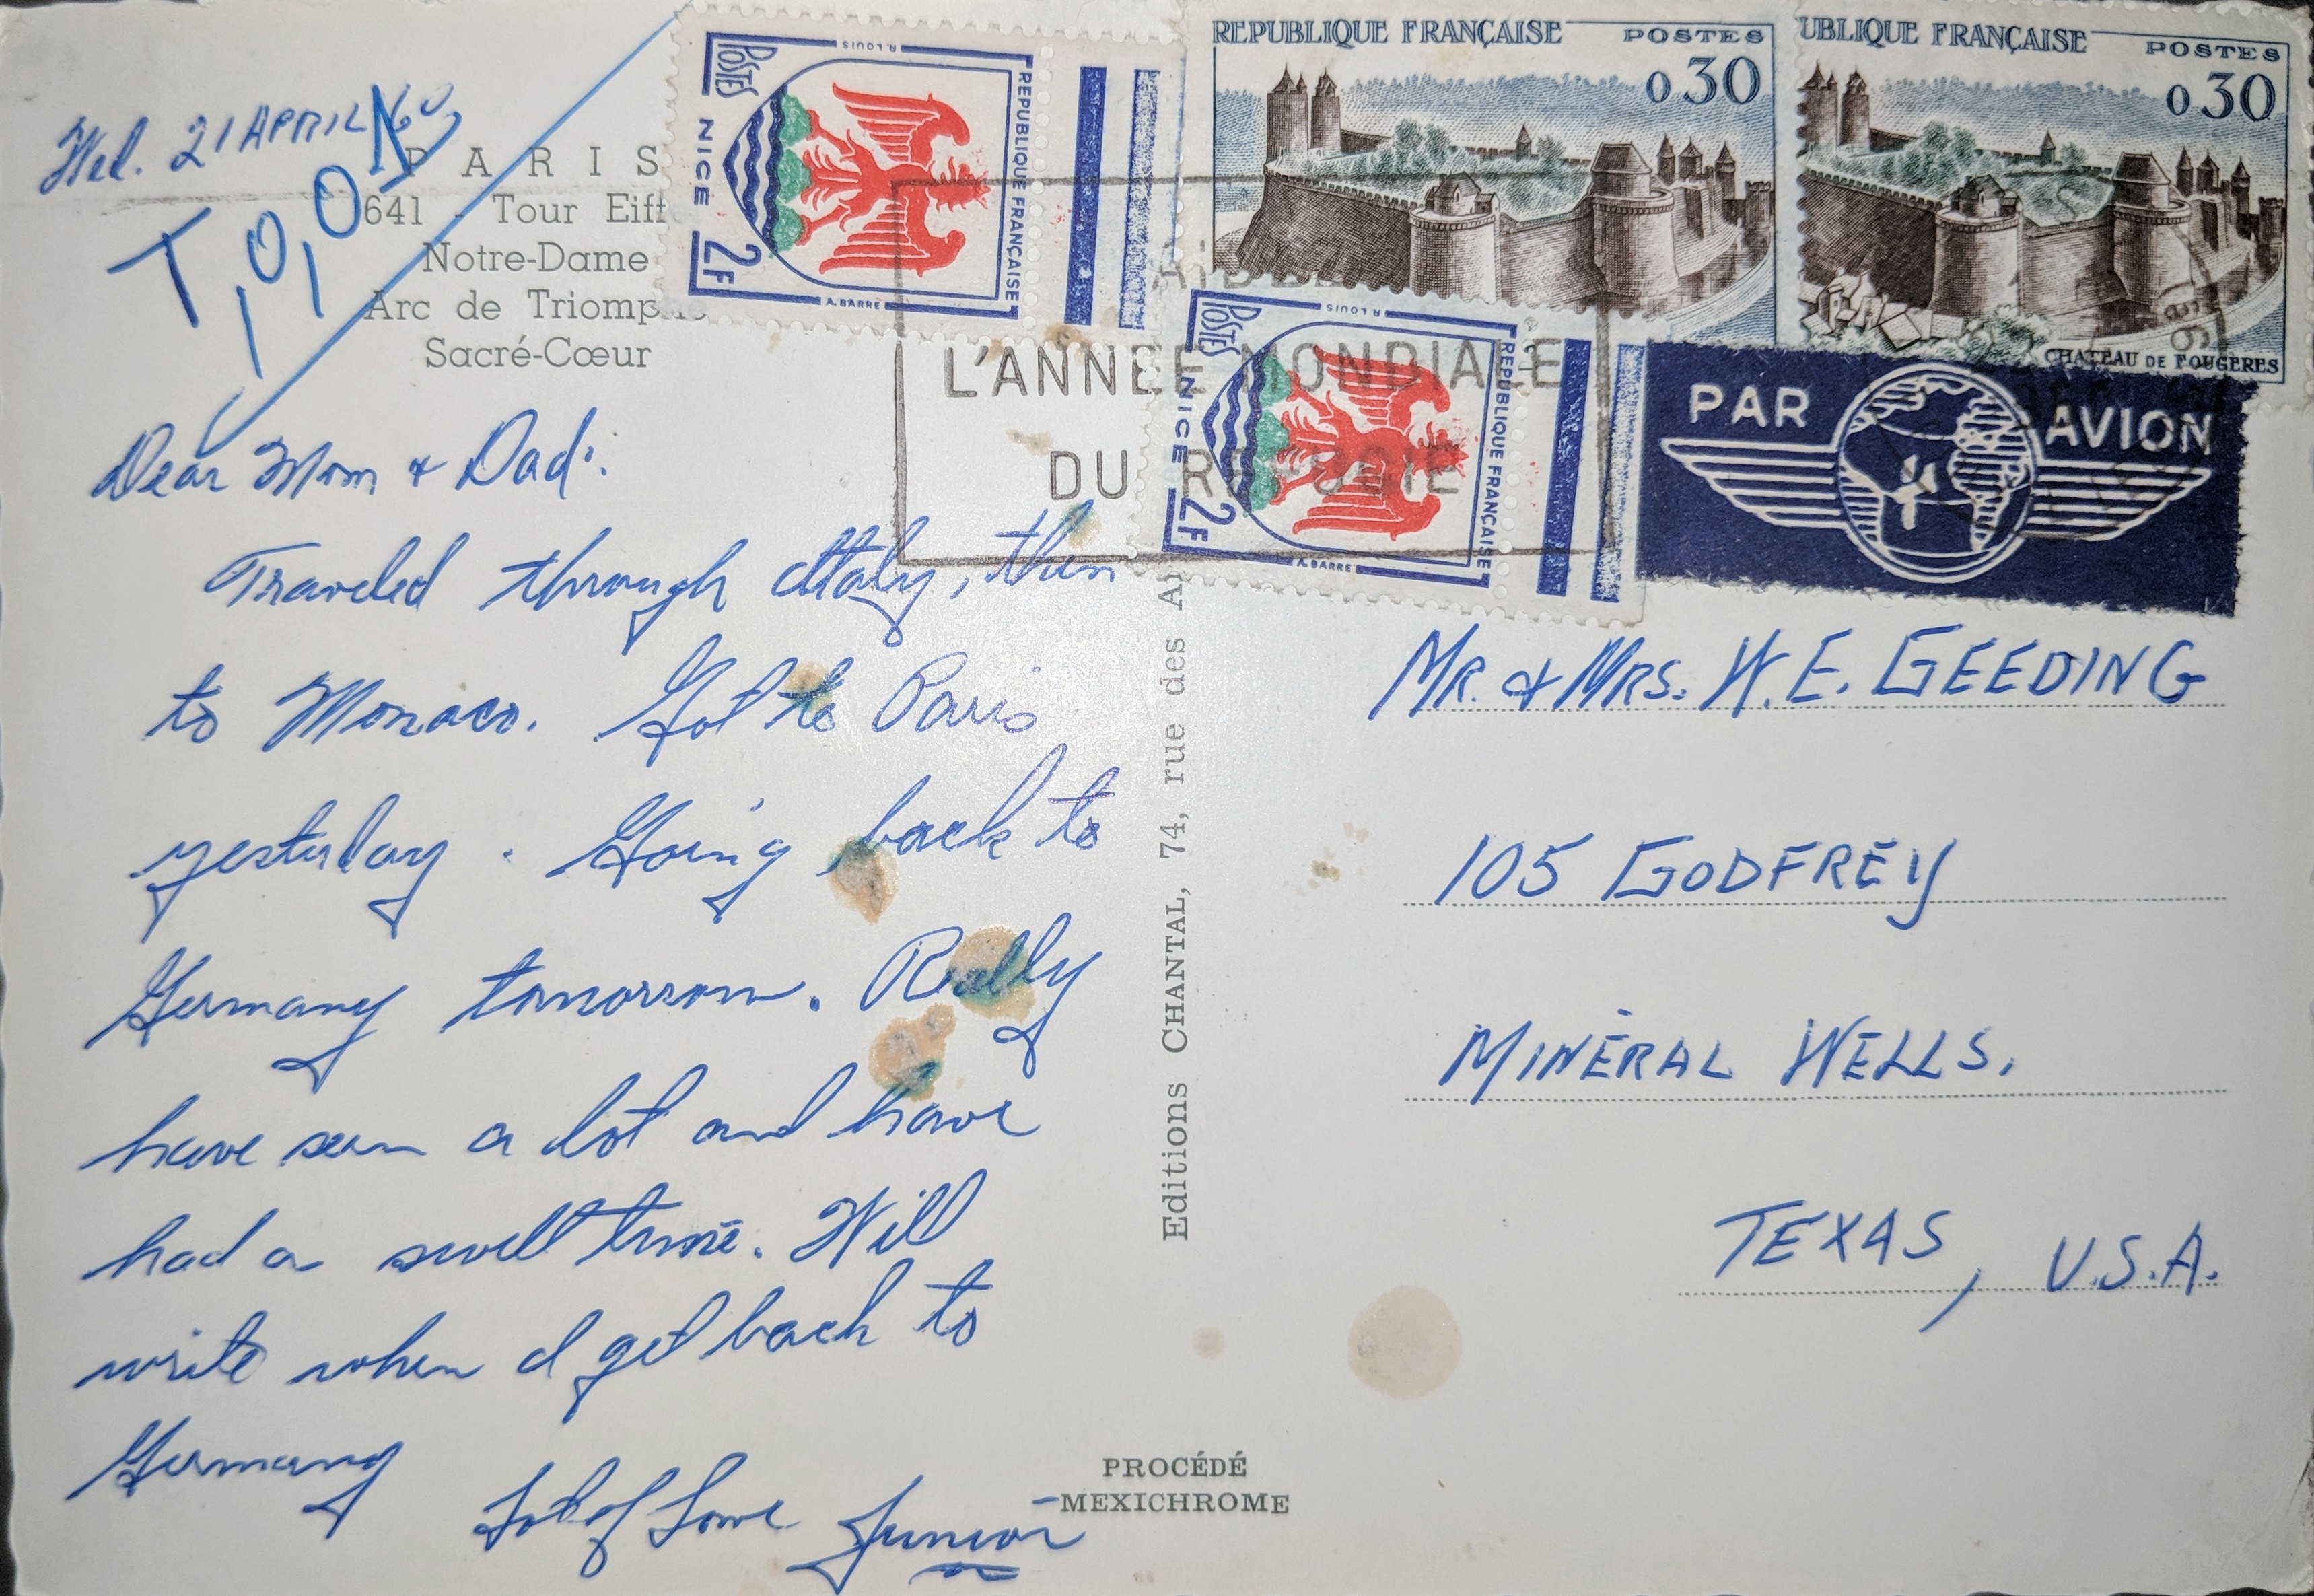 Wed. 21 APRIL 60
PARIS
641 - Tour Eiff
Notre-Dame
Arc de Triomp
Sacré-Cœur
Dear Mom & Dad:
Traveled through Italy, then
to Monaco. Got to Paris
yesterday. Going back to
Germany tomorrow. Really
have seen a lot and have
had a swell time. Will
write when I get back to
Germany
Lot of Love Junior
POSTES
R. LOUIS
REPUBLIQUE FRANÇAISE
NICE
2F
A. BARRE
REPUBLIQUE FRANÇAISE POSTES
0,30
UBLIQUE FRANÇAISE POSTES
0,30
CHATEAU DE FOUGERES
POSTES
R. LOUIS
REPUBLIQUE FRANÇAISE
NICE
2F
A. BARRE
L'ANNÉE MONDIALE
DU REFUGIE
PAR AVION
Editions CHANTAL, 74, rue des A
MR. & MRS. W. E. GEEDING
105 GODFREY
MINERAL WELLS.
TEXAS, U.S.A.
PROCÉDÉ
MEXICHROME